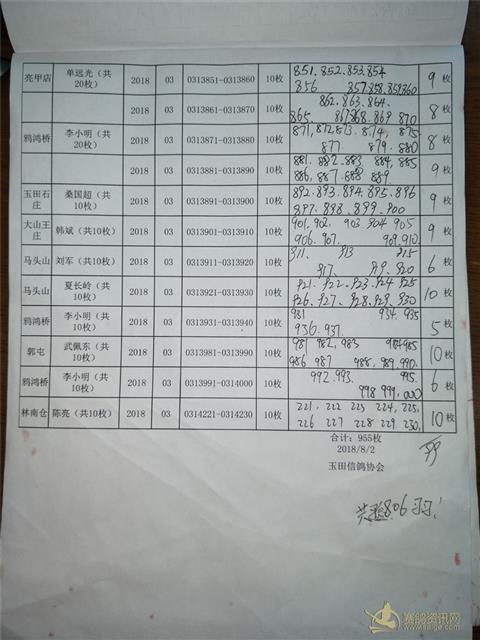 亮甲店 单远光（共20枚） 2018 03 0313851-0313860 10枚 851.852.853.854 856 857.858.859.860 9枚
2018 03 0313861-0313870 10枚 862.863.864. 865. 867.868.869 870 8枚
鸦鸿桥 李小明（共20枚） 2018 03 0313871-0313880 10枚 871,872,873.874,875 877 879.880 8枚
2018 03 0313881-0313890 10枚 881.882.883 884,885 886,887.888 889 9枚
玉田石庄 桑国超（共10枚） 2018 03 0313891-0313900 10枚 892.893.894.895.896 897.898.899.900 9枚
大山王庄 韩斌（共10枚） 2018 03 0313901-0313910 10枚 901,902. 903.904 905 906.907. 909,910. 9枚
马头山 刘军（共10枚） 2018 03 0313911-0313920 10枚 911. 913 915 917、 919、920 6枚
马头山 夏长岭（共10枚） 2018 03 0313921-0313930 10枚 921.922.923.924.925 926.927、928.929.930 10枚
鸦鸿桥 李小明（共10枚） 2018 03 0313931-0313940 10枚 931 934.935 936.937. 5枚
郭屯 武佩东（共10枚） 2018 03 0313981-0313990 10枚 981 982,983 984.985 986 987 988.989.990. 10枚
鸦鸿桥 李小明（共10枚） 2018 03 0313991-0314000 10枚 992.993. 995. 998 999.000 6枚
林南仓 陈亮（共10枚） 2018 03 0314221-0314230 10枚 221. 222 223 224,225, 226 227 228 229 230, 10枚
合计：955枚
2018/8/2
玉田信鸽协会
806羽
赛鸽资讯网
www.saige.com